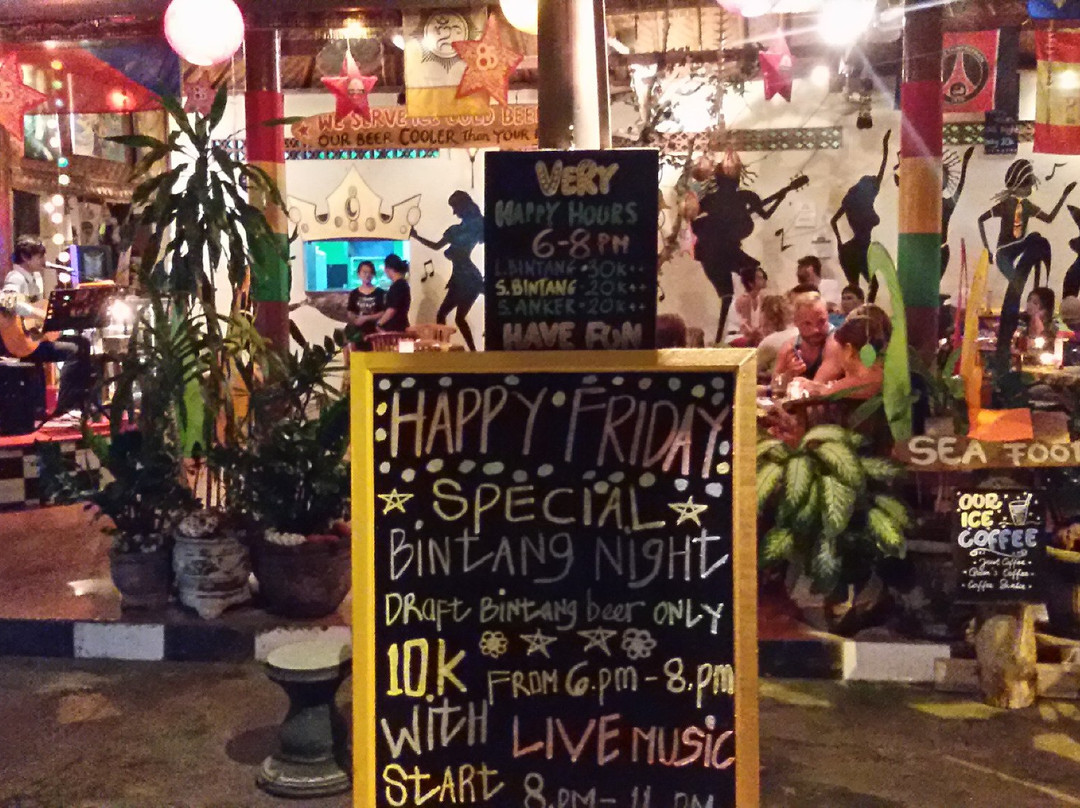 WE SERVE ICE COLD BEER
OUR BEER COOLER than YOUR
VERY
HAPPY HOURS
6-8 PM
L. BINTANG • 30K++
S. BINTANG • 20K++
S. ANKER • 20K++
HAVE FUN
HAPPY FRIDAY
SPECIAL
BINTANG NIGHT
DRAFt BINtANg beer ONLY
10.K FROM 6.pm - 8.pm
WITH LIVE MUSIC
START 8.PM - 11 PM
SEA FOOD
OUR
ICE
COFFEE